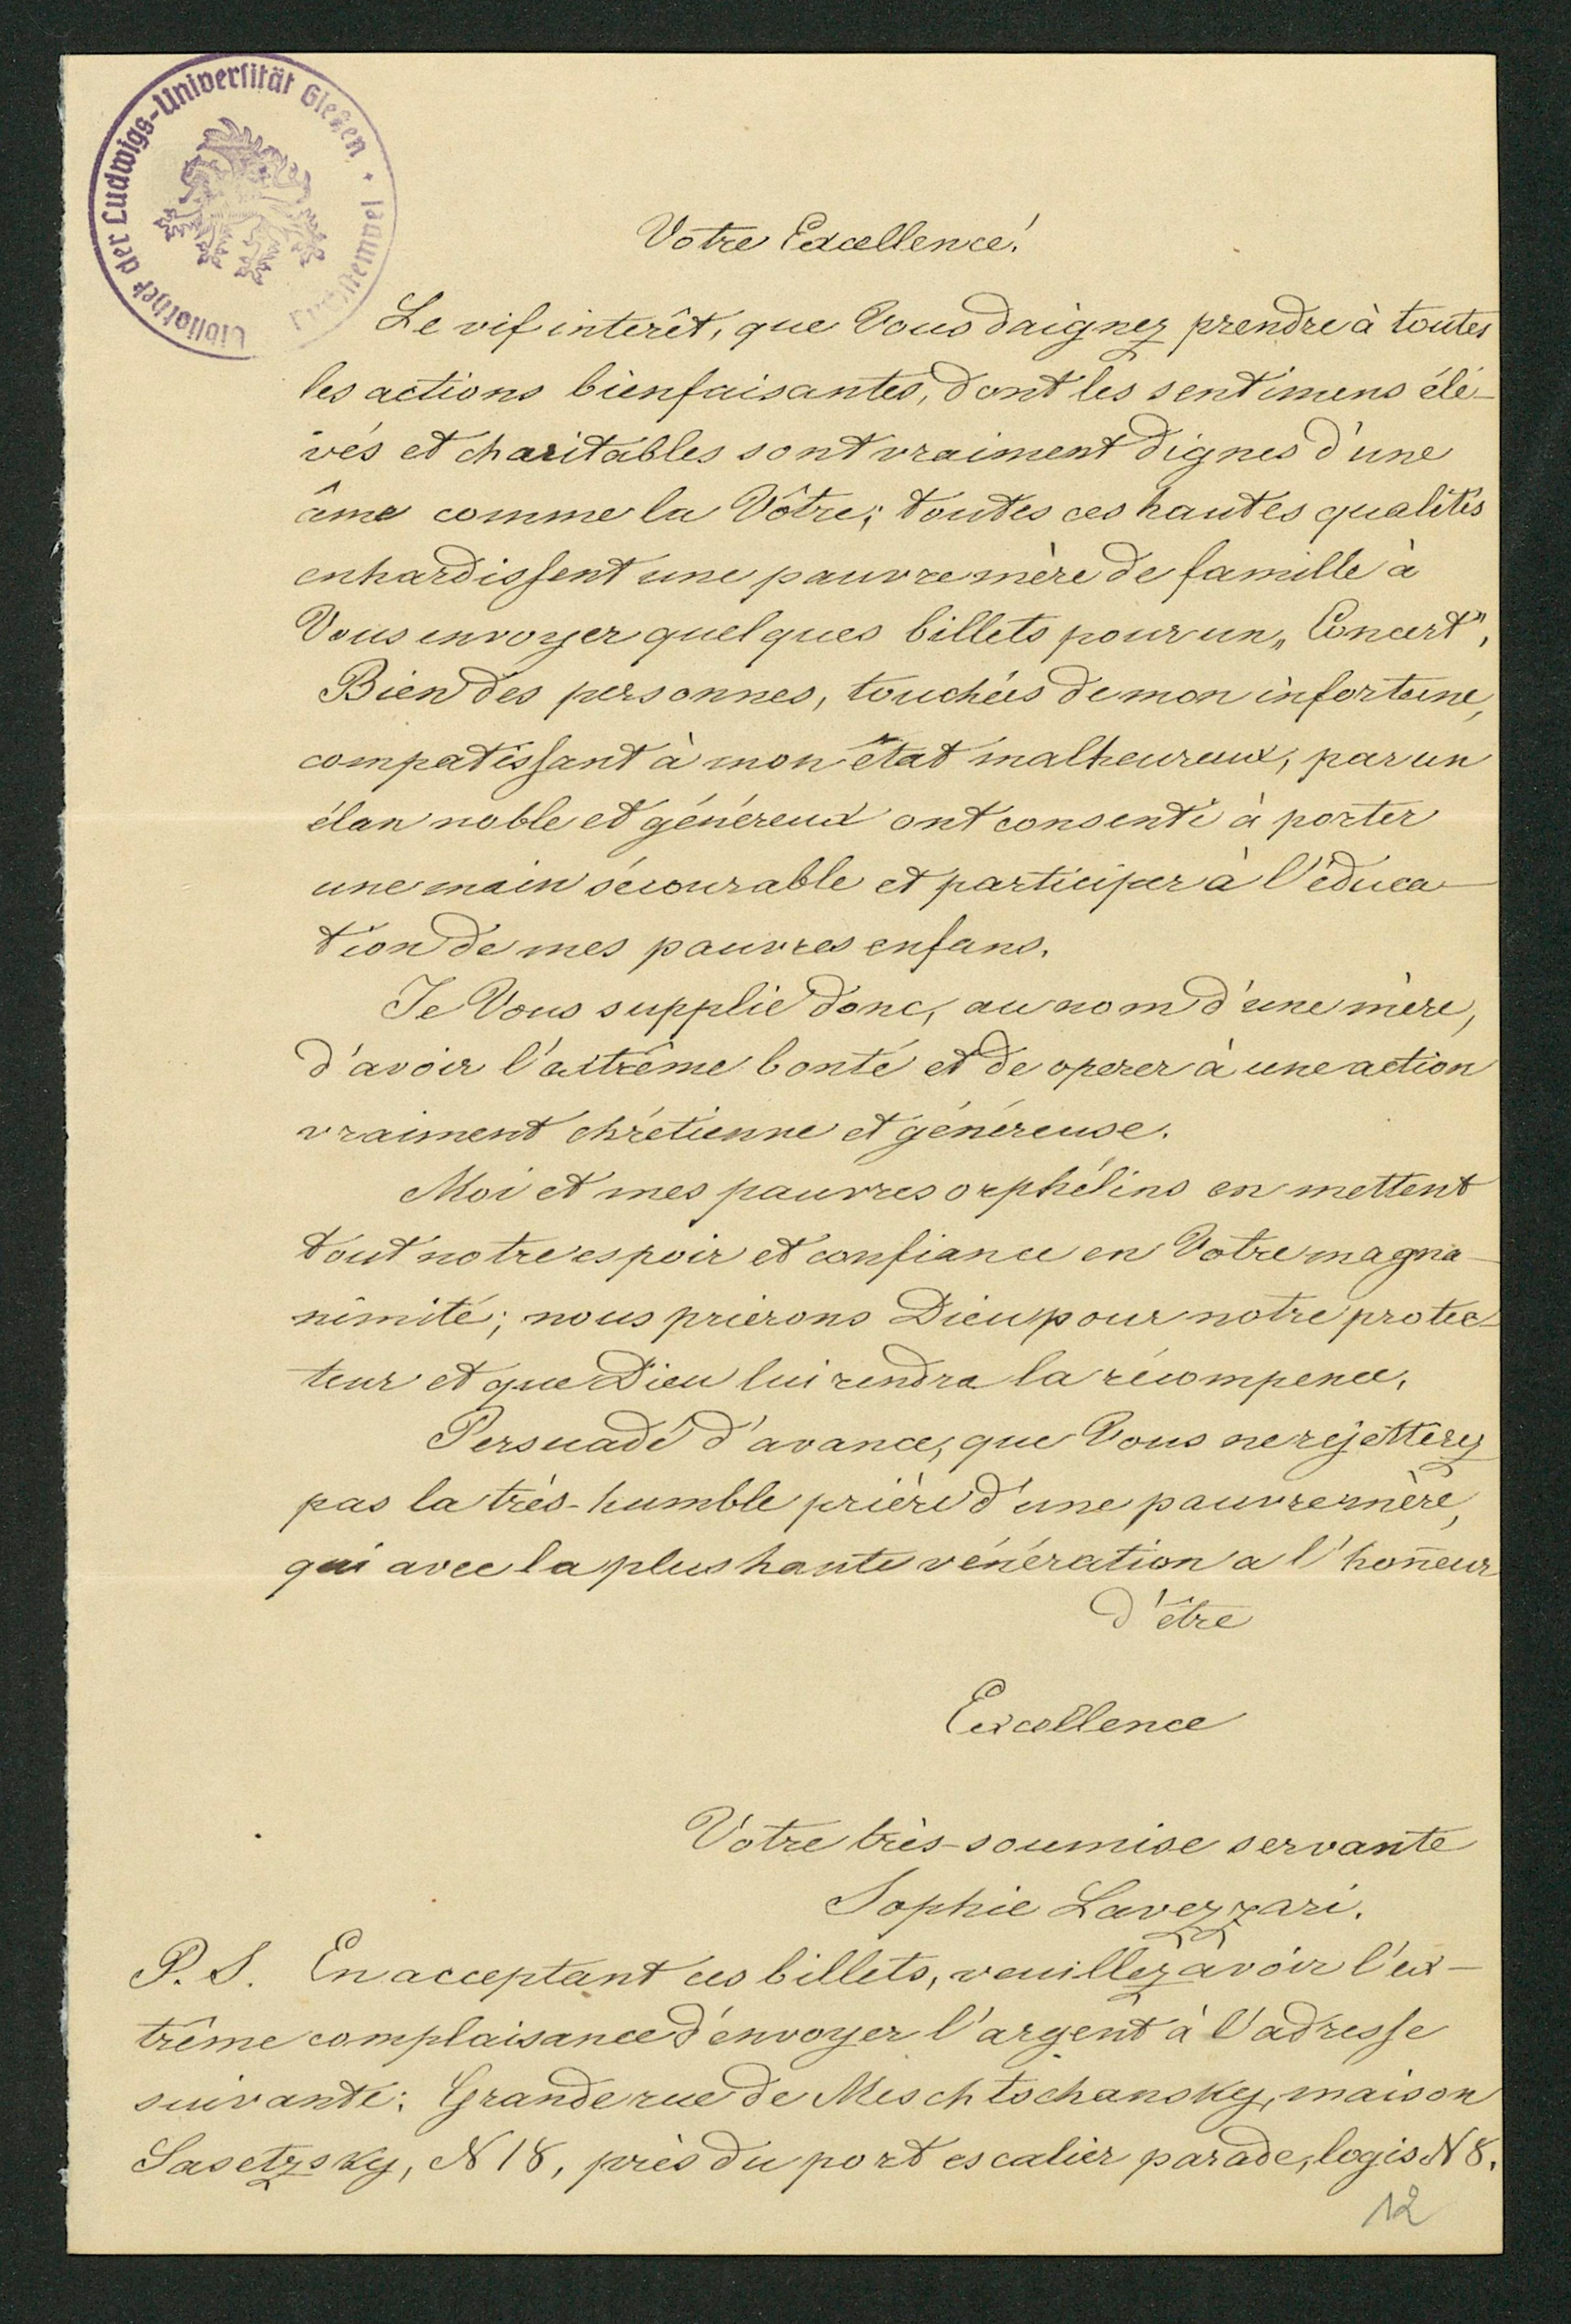 Bibliothek der Ludwigs-Universität Gießen.
Votre Excellence!
Le vif interêt, que Vous daignez prendre à toutes
les actions bienfaisantes, dont les sentimens élé-
vés et charitables sont vraiment dignes d'une
âme comme la Vôtre; toutes ces hautes qualités
enhardissent une pauvre mère de famille à
Vous envoyer quelques billets pour un „Concert",
Bien des personnes, touchées de mon infortune,
compatissant à mon état malheureux, par un
élan noble et généreux ont consenti à porter
une main sécourable et participer à l'éduca-
tion de mes pauvres enfans.
Je Vous supplie donc, au nom d'une mère,
d'avoir l'extrême bonté et de operer à une action
vraiment chrétienne et généreuse.
Moi et mes pauvres orphélins en mettent
tout notre espoir et confiance en Votre magna-
nimité; nous prierons Dieu pour notre protec-
teur et que Dieu lui rendra la récompence.
Persuadé d'avance, que Vous ne rejetterez
pas la très-humble prière d'une pauvre mère,
qui avec la plus haute vénération a l'hoñeur
d'être
Excellence
Votre très-soumise servante
Sophie Lavezzari.
P. S. En acceptant ces billets, veuillez avoir l'ex-
trême complaisance d'envoyer l'argent à l'adresse
suivante: Grande rue de Meschtschansky, maison
Sasetzsky, N 18, près du port escalier parade, logis N 8.
12